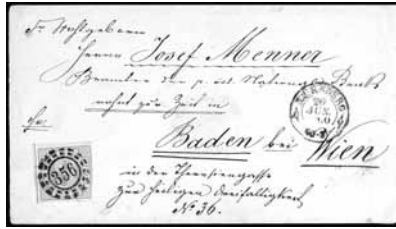 Sr Wohlgeboren
Herrn Josef Menner
Beamter der p. öst. National Bank
wohnt zur Zeit in
Baden bei Wien
in der Theresiengasse
zur heiligen Dreifaltigkeit
№ 36.
NÜRNBERG
20
JUN.
356